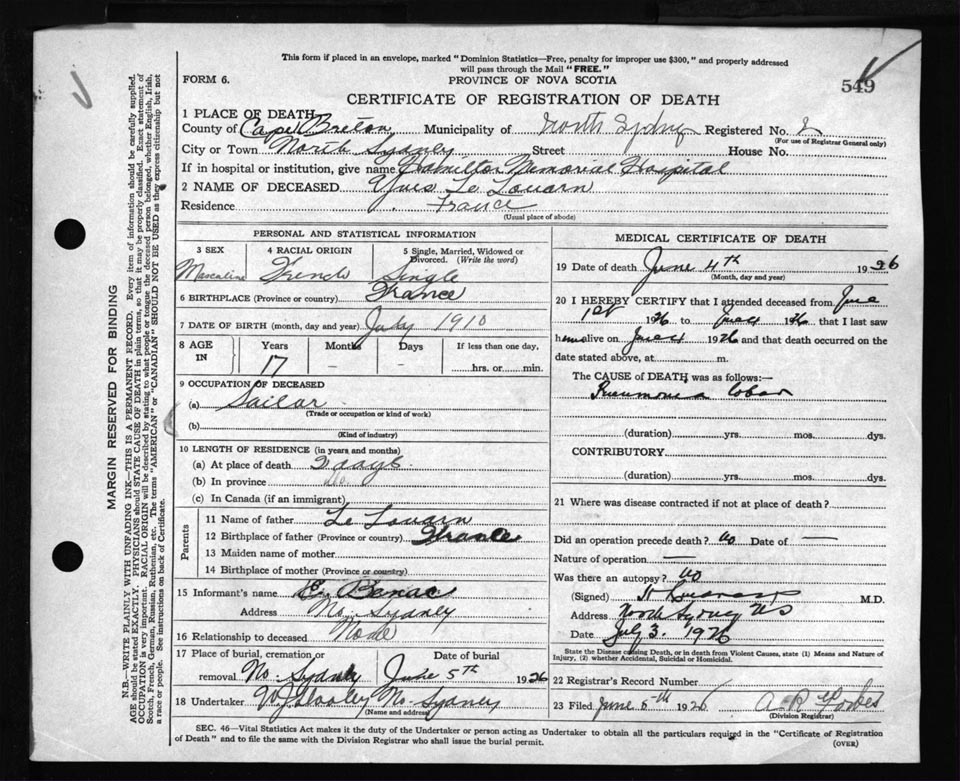 This form if placed in an envelope, marked "Dominion Statistics—Free, penalty for improper use $300," and properly addressed
will pass through the Mail "FREE."
FORM 6. PROVINCE OF NOVA SCOTIA 549
CERTIFICATE OF REGISTRATION OF DEATH
1 PLACE OF DEATH
County of Cape Breton Municipality of North Sydney Registered No.
(For use of Registrar General only)
City or Town North Sydney Street House No.
If in hospital or institution, give name Hamilton Memorial Hospital
2 NAME OF DECEASED Yves Le Louarn
Residence France
(Usual place of abode)
PERSONAL AND STATISTICAL INFORMATION
3 SEX 4 RACIAL ORIGIN 5 Single, Married, Widowed or
Divorced. (Write the word)
Masculine French Single
6 BIRTHPLACE (Province or country) France
7 DATE OF BIRTH (month, day and year) July 1910
8 AGE IN Years Months Days If less than one day,
17 – – hrs. or min.
9 OCCUPATION OF DECEASED
(a) Sailor
(Trade or occupation or kind of work)
(b)
(Kind of industry)
10 LENGTH OF RESIDENCE (in years and months)
(a) At place of death days
(b) In province do
(c) In Canada (if an immigrant)
Parents
11 Name of father Le Louarn
12 Birthplace of father (Province or country) France
13 Maiden name of mother
14 Birthplace of mother (Province or country)
15 Informant's name Benac
Address No. Sydney
16 Relationship to deceased None
17 Place of burial, cremation or Date of burial
removal No. Sydney June 5th 1926
18 Undertaker No Sydney
(Name and address)
MEDICAL CERTIFICATE OF DEATH
19 Date of death June 4th 1926
(Month, day and year)
20 I HEREBY CERTIFY that I attended deceased from June
1st 1926 to June 4 1926 that I last saw
him alive on June 4 1926 and that death occurred on the
date stated above, at m.
The CAUSE of DEATH was as follows:—
Pneumonia Lobar
(duration) yrs. mos. dys.
CONTRIBUTORY
(duration) yrs. mos. dys.
21 Where was disease contracted if not at place of death?
Did an operation precede death? no Date of —
Nature of operation —
Was there an autopsy? no
(Signed) M.D.
Address North Sydney NS
Date July 3. 1926
State the Disease causing Death, or in death from Violent Causes, state (1) Means and Nature of
Injury, (2) whether Accidental, Suicidal or Homicidal.
22 Registrar's Record Number
23 Filed June 5th 1926 A R Forbes
(Division Registrar)
SEC. 46—Vital Statistics Act makes it the duty of the Undertaker or person acting as Undertaker to obtain all the particulars required in the "Certificate of Registration
of Death" and to file the same with the Division Registrar who shall issue the burial permit. (OVER)
MARGIN RESERVED FOR BINDING
N.B.—WRITE PLAINLY WITH UNFADING INK—THIS IS A PERMANENT RECORD. Every item of information should be carefully supplied.
AGE should be stated EXACTLY. PHYSICIANS should STATE CAUSE OF DEATH in plain terms, so that it may be properly classified. Exact statement of
OCCUPATION is very important. RACIAL ORIGIN will be described by stating to what people or tongue the deceased person belonged, whether English, Irish,
Scotch, French, German, Russian, Ruthenian, etc. The terms "AMERICAN" or "CANADIAN" SHOULD NOT BE USED as they express citizenship but not
a race or people. See instructions on back of Certificate.